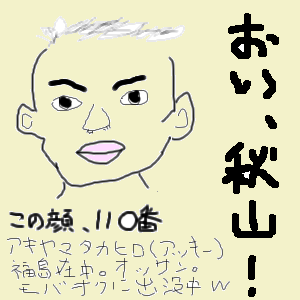 おい、秋山！
この顔、110番
アキヤマタカヒロ(アッキー)
福島在中。オッサン。
モバオクに出没中w